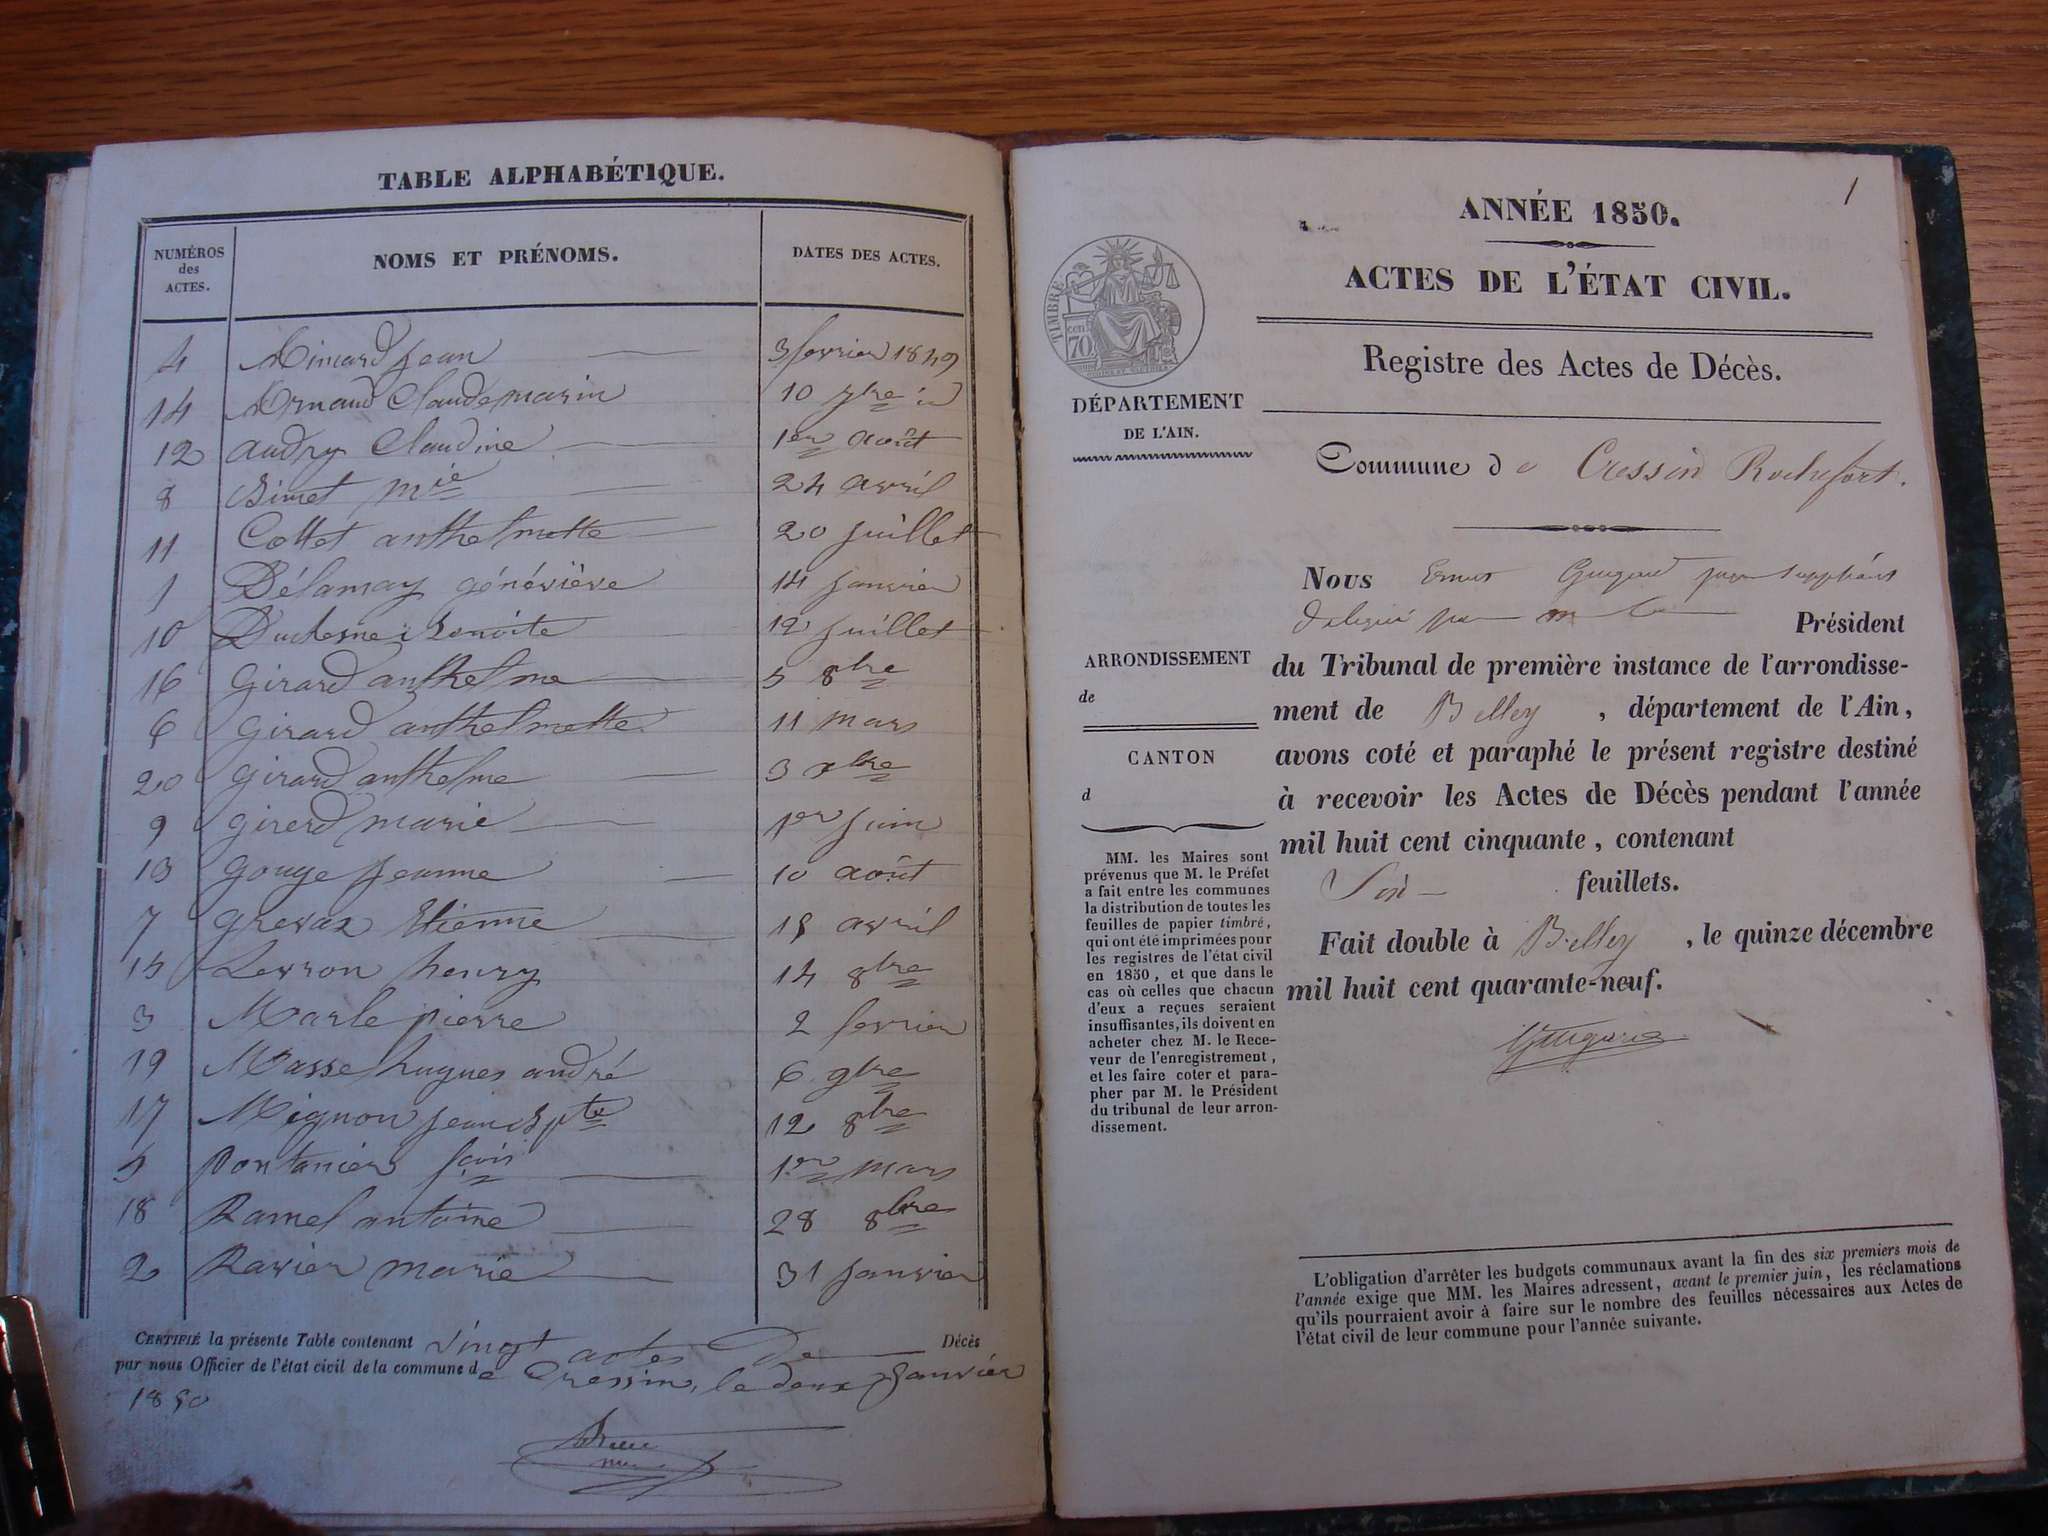 TABLE ALPHABÉTIQUE.
NUMÉROS des ACTES. NOMS ET PRÉNOMS. DATES DES ACTES.
4 Aimard Jean 3 fevrier 1849
14 Arnaud Claude marin 10 7bre id
12 audry Claudine 1er août
8 Binet mie 24 avril
11 Cottet anthelmette 20 juillet
1 Délamay généviève 14 janvier
10 Duchesne Benoite 12 juillet
16 Girard anthelme 5 8bre
6 Girard anthelmette 11 mars
20 Girard anthelme 3 xbre
9 Girerd marie 1er juin
13 Gouge jeanne 10 août
7 Grevaz Etienne 15 avril
15 Levron henry 14 8bre
3 Marle pierre 2 fevrier
19 Masse hugues andré 6 9bre
17 Mignon jean Bpte 12 8bre
5 Pontanier fcois 1er mars
18 Ramel antoine 28 8bre
2 Ravier marie 31 janvier
CERTIFIÉ la présente Table contenant vingt actes De Décès
par nous Officier de l'état civil de la commune de Cressin, le deux Janvier
1850
1
ANNÉE 1850.
ACTES DE L'ÉTAT CIVIL.
Registre des Actes de Décès.
TIMBRE
cen
70
DÉPARTEMENT
DE L'AIN.
Commune de Cressin Rochefort.
Nous Ernest juge suppléant
délégué par m Président
ARRONDISSEMENT
de
du Tribunal de première instance de l'arrondisse-
ment de Belley, département de l'Ain,
CANTON
d
avons coté et paraphé le présent registre destiné
à recevoir les Actes de Décès pendant l'année
mil huit cent cinquante, contenant
Six feuillets.
Fait double à Belley, le quinze décembre
mil huit cent quarante-neuf.
MM. les Maires sont
prévenus que M. le Préfet
a fait entre les communes
la distribution de toutes les
feuilles de papier timbré,
qui ont été imprimées pour
les registres de l'état civil
en 1850, et que dans le
cas où celles que chacun
d'eux a reçues seraient
insuffisantes, ils doivent en
acheter chez M. le Rece-
veur de l'enregistrement,
et les faire coter et para-
pher par M. le Président
du tribunal de leur arron-
dissement.
L'obligation d'arrêter les budgets communaux avant la fin des six premiers mois de
l'année exige que MM. les Maires adressent, avant le premier juin, les réclamations
qu'ils pourraient avoir à faire sur le nombre des feuilles nécessaires aux Actes de
l'état civil de leur commune pour l'année suivante.